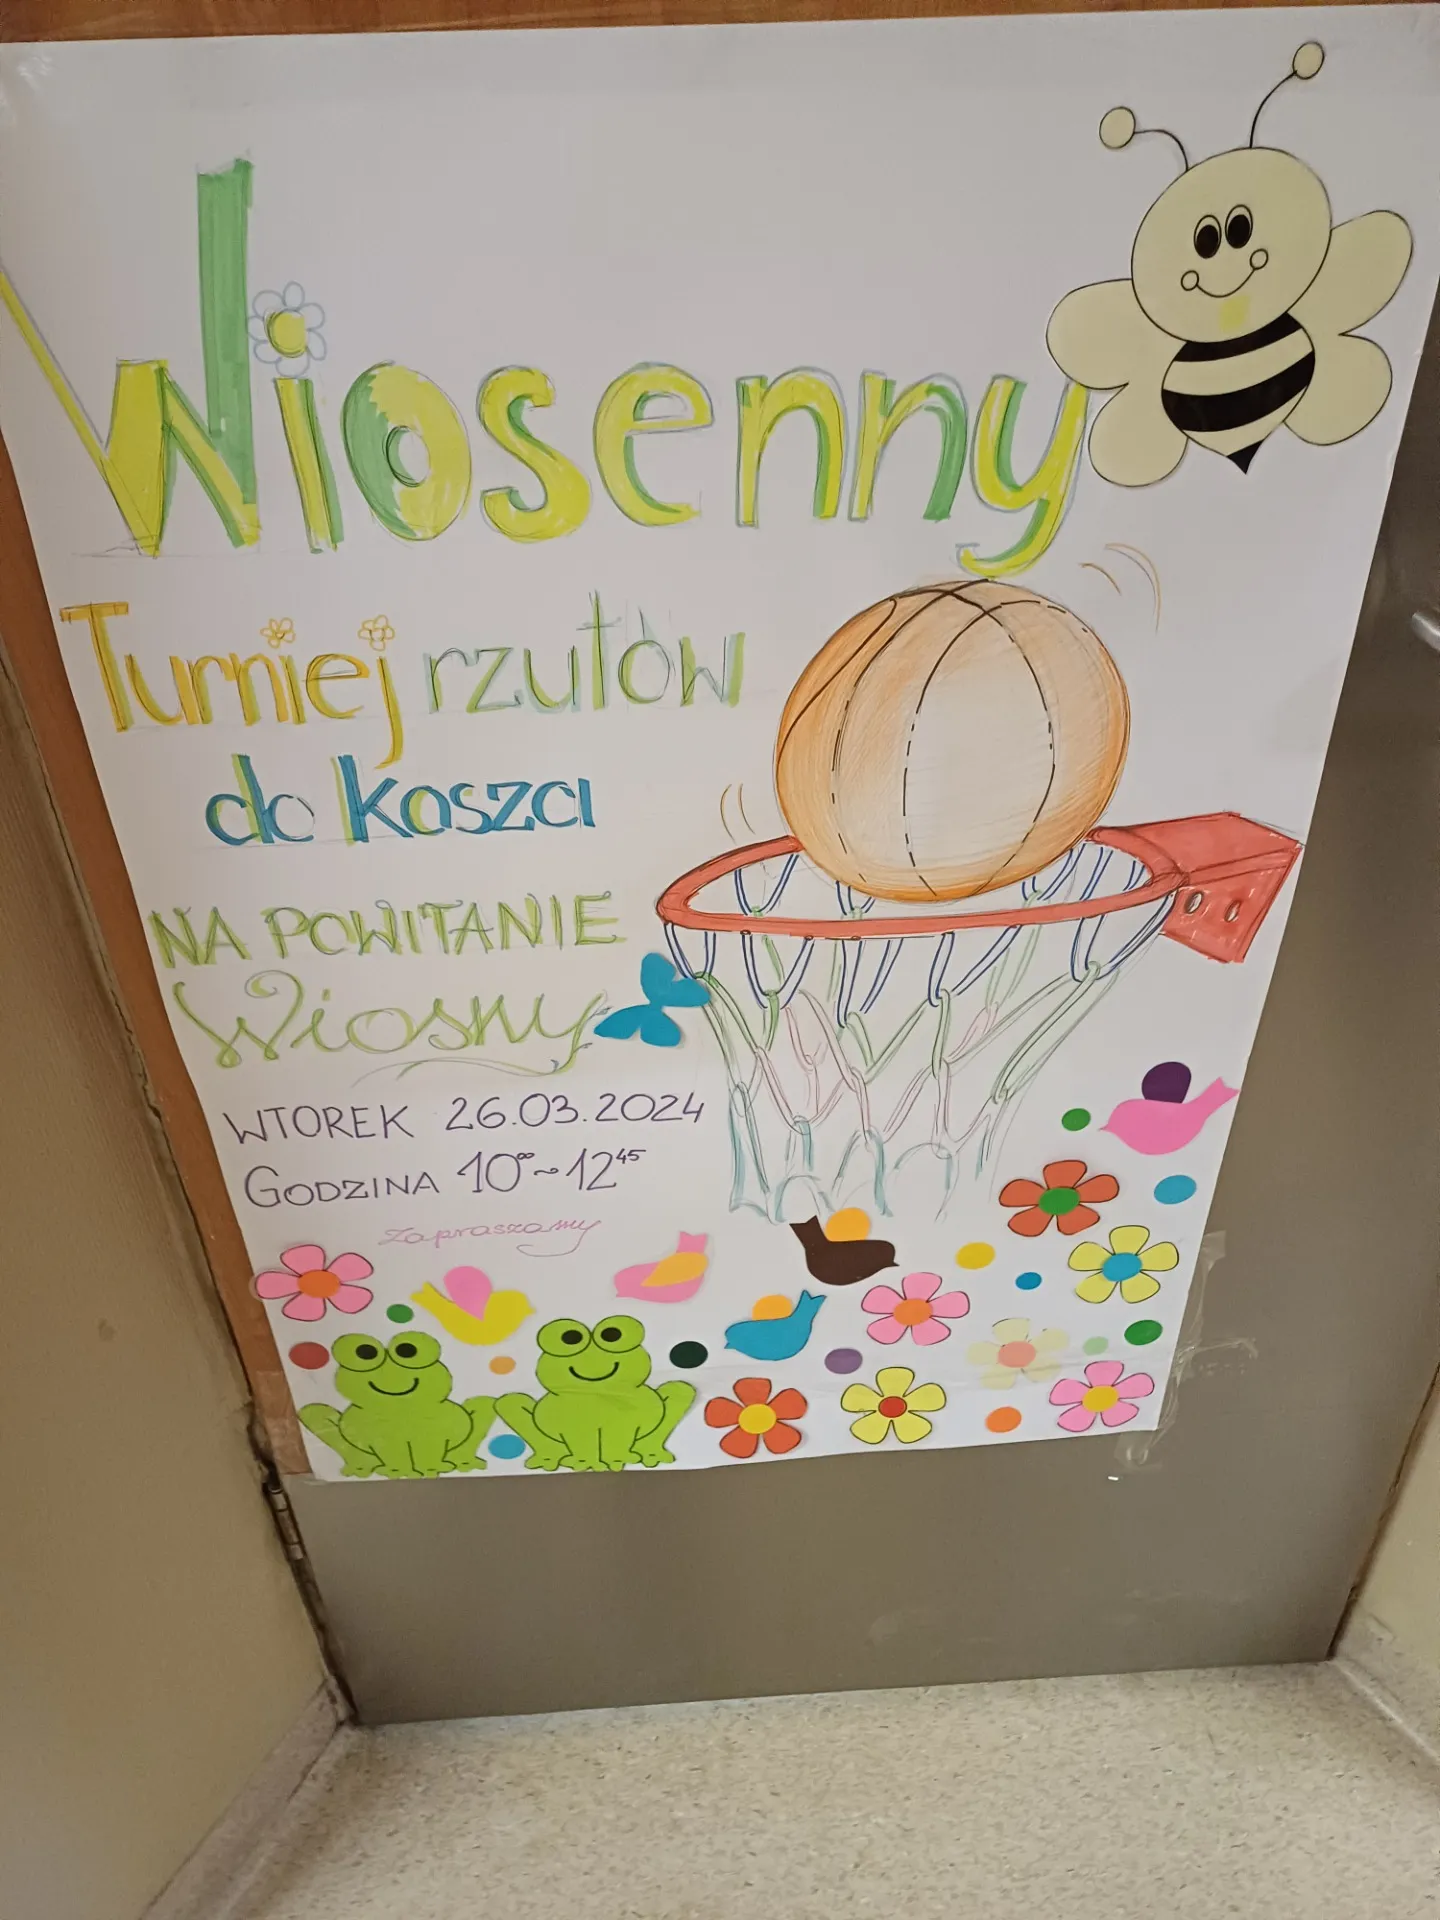 Wiosenny
Turniej rzutów
do kosza
NA POWITANIE
Wiosny
WTOREK 26.03.2024
GODZINA 10⁰⁰~12⁴⁵
Zapraszamy